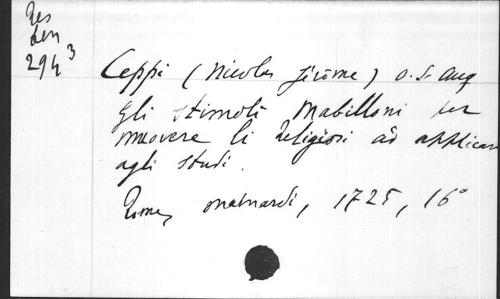 Res
den
294³
Ceppi (Nicolas Jérôme) o. S. Aug
Gli stimoli Mabilloni per
muovere li religiosi ad applicare
agli studi.
Rome, Mainardi, 1725, 16°